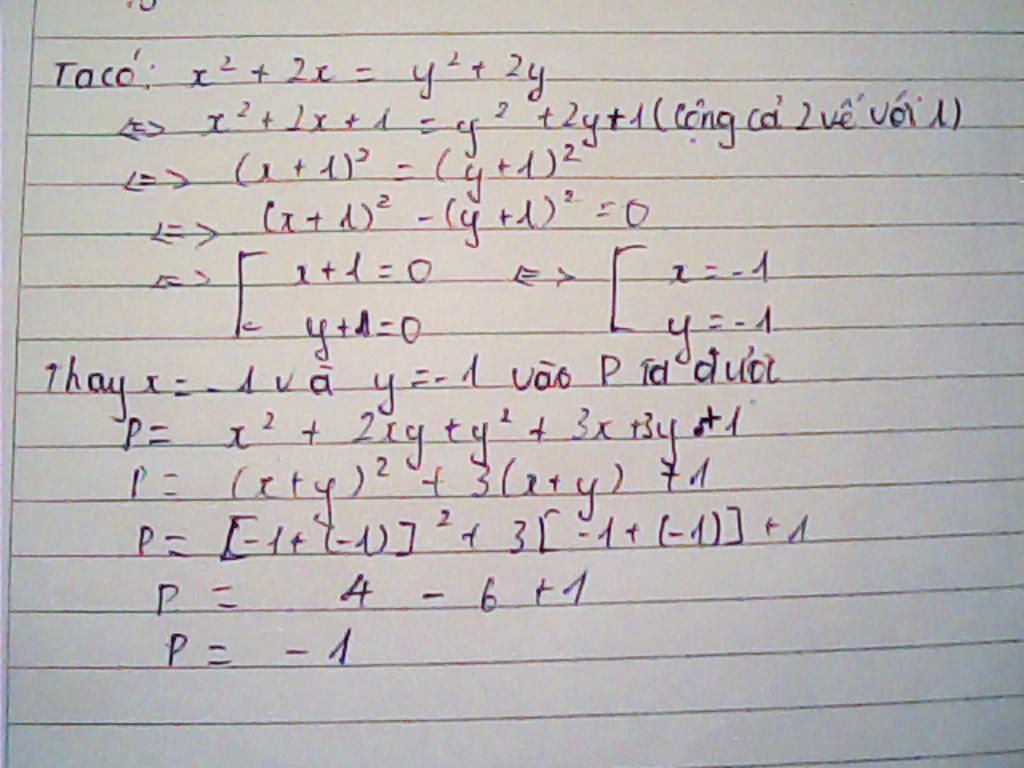 Ta có: x² + 2x = y² + 2y
<=> x² + 2x + 1 = y² + 2y + 1 (Cộng cả 2 vế với 1)
<=> (x + 1)² = (y + 1)²
<=> (x + 1)² - (y + 1)² = 0
<=> [ x + 1 = 0 <=> [ x = -1
y + 1 = 0 y = -1
Thay x = -1 và y = -1 vào P ta được
P = x² + 2xy + y² + 3x + 3y + 1
P = (x + y)² + 3(x + y) + 1
P = [-1 + (-1)]² + 3[-1 + (-1)] + 1
P = 4 - 6 + 1
P = -1